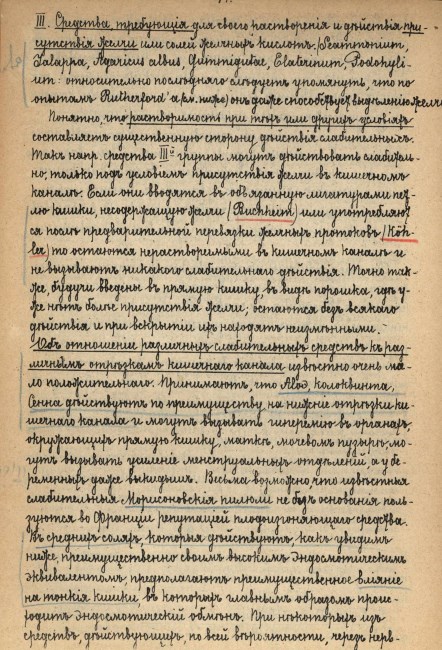 III. Средства, требующія для своего растворенія и дѣйствія при-
сутствія желчи или солей желчныхъ кислотъ: Scammonium,
Jalappa, Agaricus albus, Gummigutae, Elaterium, Podophyli-
um - относительно послѣдняго слѣдуетъ упомянуть, что по
опытамъ Rutherford'а (см. ниже) онъ даже способствуетъ выдѣленію желчи
Понятно, что растворимость при тѣхъ или другихъ условіяхъ
составляетъ существенную сторону дѣйствія слабительныхъ.
Такъ напр. средства III й группы могутъ дѣйствовать слабитель-
но; только подъ условіемъ присутствія желчи въ кишечномъ
каналѣ. Если они вводятся въ обвязанную лигатурами пет-
лю кишки, несодержащую желчи (Buchheim) или употребляют-
ся послѣ предварительной перевязки желчныхъ протоковъ (Köh-
ler) то остаются нерастворимыми въ кишечномъ каналѣ и
не вызываютъ никакого слабительнаго дѣйствія. Точно так-
же, будучи введены въ прямую кишку, въ видѣ порошка, гдѣ у-
же нѣтъ болѣе присутствія желчи; остаются безъ всякаго
дѣйствія и при вскрытіи ихъ находятъ неизмѣнными.
Объ отношеніи различныхъ слабительныхъ средствъ къ раз-
личнымъ отрѣзкамъ кишечнаго канала извѣстно очень ма-
ло положительнаго. Принимаютъ, что Aloё, колоквинта,
Сенна дѣйствуютъ по преимуществу на нижніе отрѣзки ки-
шечнаго канала и могутъ вызывать гиперемію въ органахъ,
окружающихъ прямую кишку, маткѣ, мочевомъ пузырѣ; мо-
гутъ вызывать усиленіе менструальныхъ отдѣленій а у бе-
ременныхъ даже выкидышъ. Весьма возможно, что извѣстныя
слабительныя Морисоновскія пилюли не безъ основанія поль-
зуются во Франціи репутаціей плодоизгоняющаго средства.
Въ среднихъ соляхъ, которыя дѣйствуютъ, какъ увидимъ
ниже, преимущественно своимъ высокимъ эндосмотическимъ
эквивалентомъ, предполагаютъ преимущественное вліяніе
на тонкія кишки, въ которыхъ главнымъ образомъ проис-
ходитъ эндосмотическій обмѣнъ. При нѣкоторыхъ изъ
средствъ, дѣйствующихъ, по всей вѣроятности, черезъ нерв-